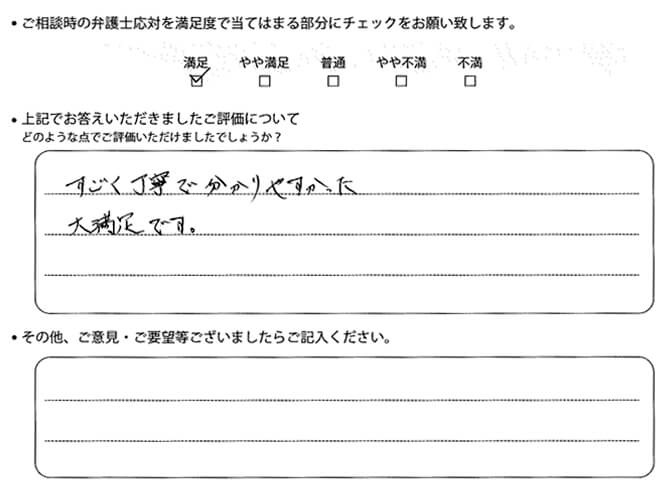 • ご相談時の弁護士応対を満足度で当てはまる部分にチェックをお願い致します。
満足 やや満足 普通 やや不満 不満
• 上記でお答えいただきましたご評価について
どのような点でご評価いただけましたでしょうか？
すごく丁寧で分かりやすかった
大満足です。
• その他、ご意見・ご要望等ございましたらご記入ください。